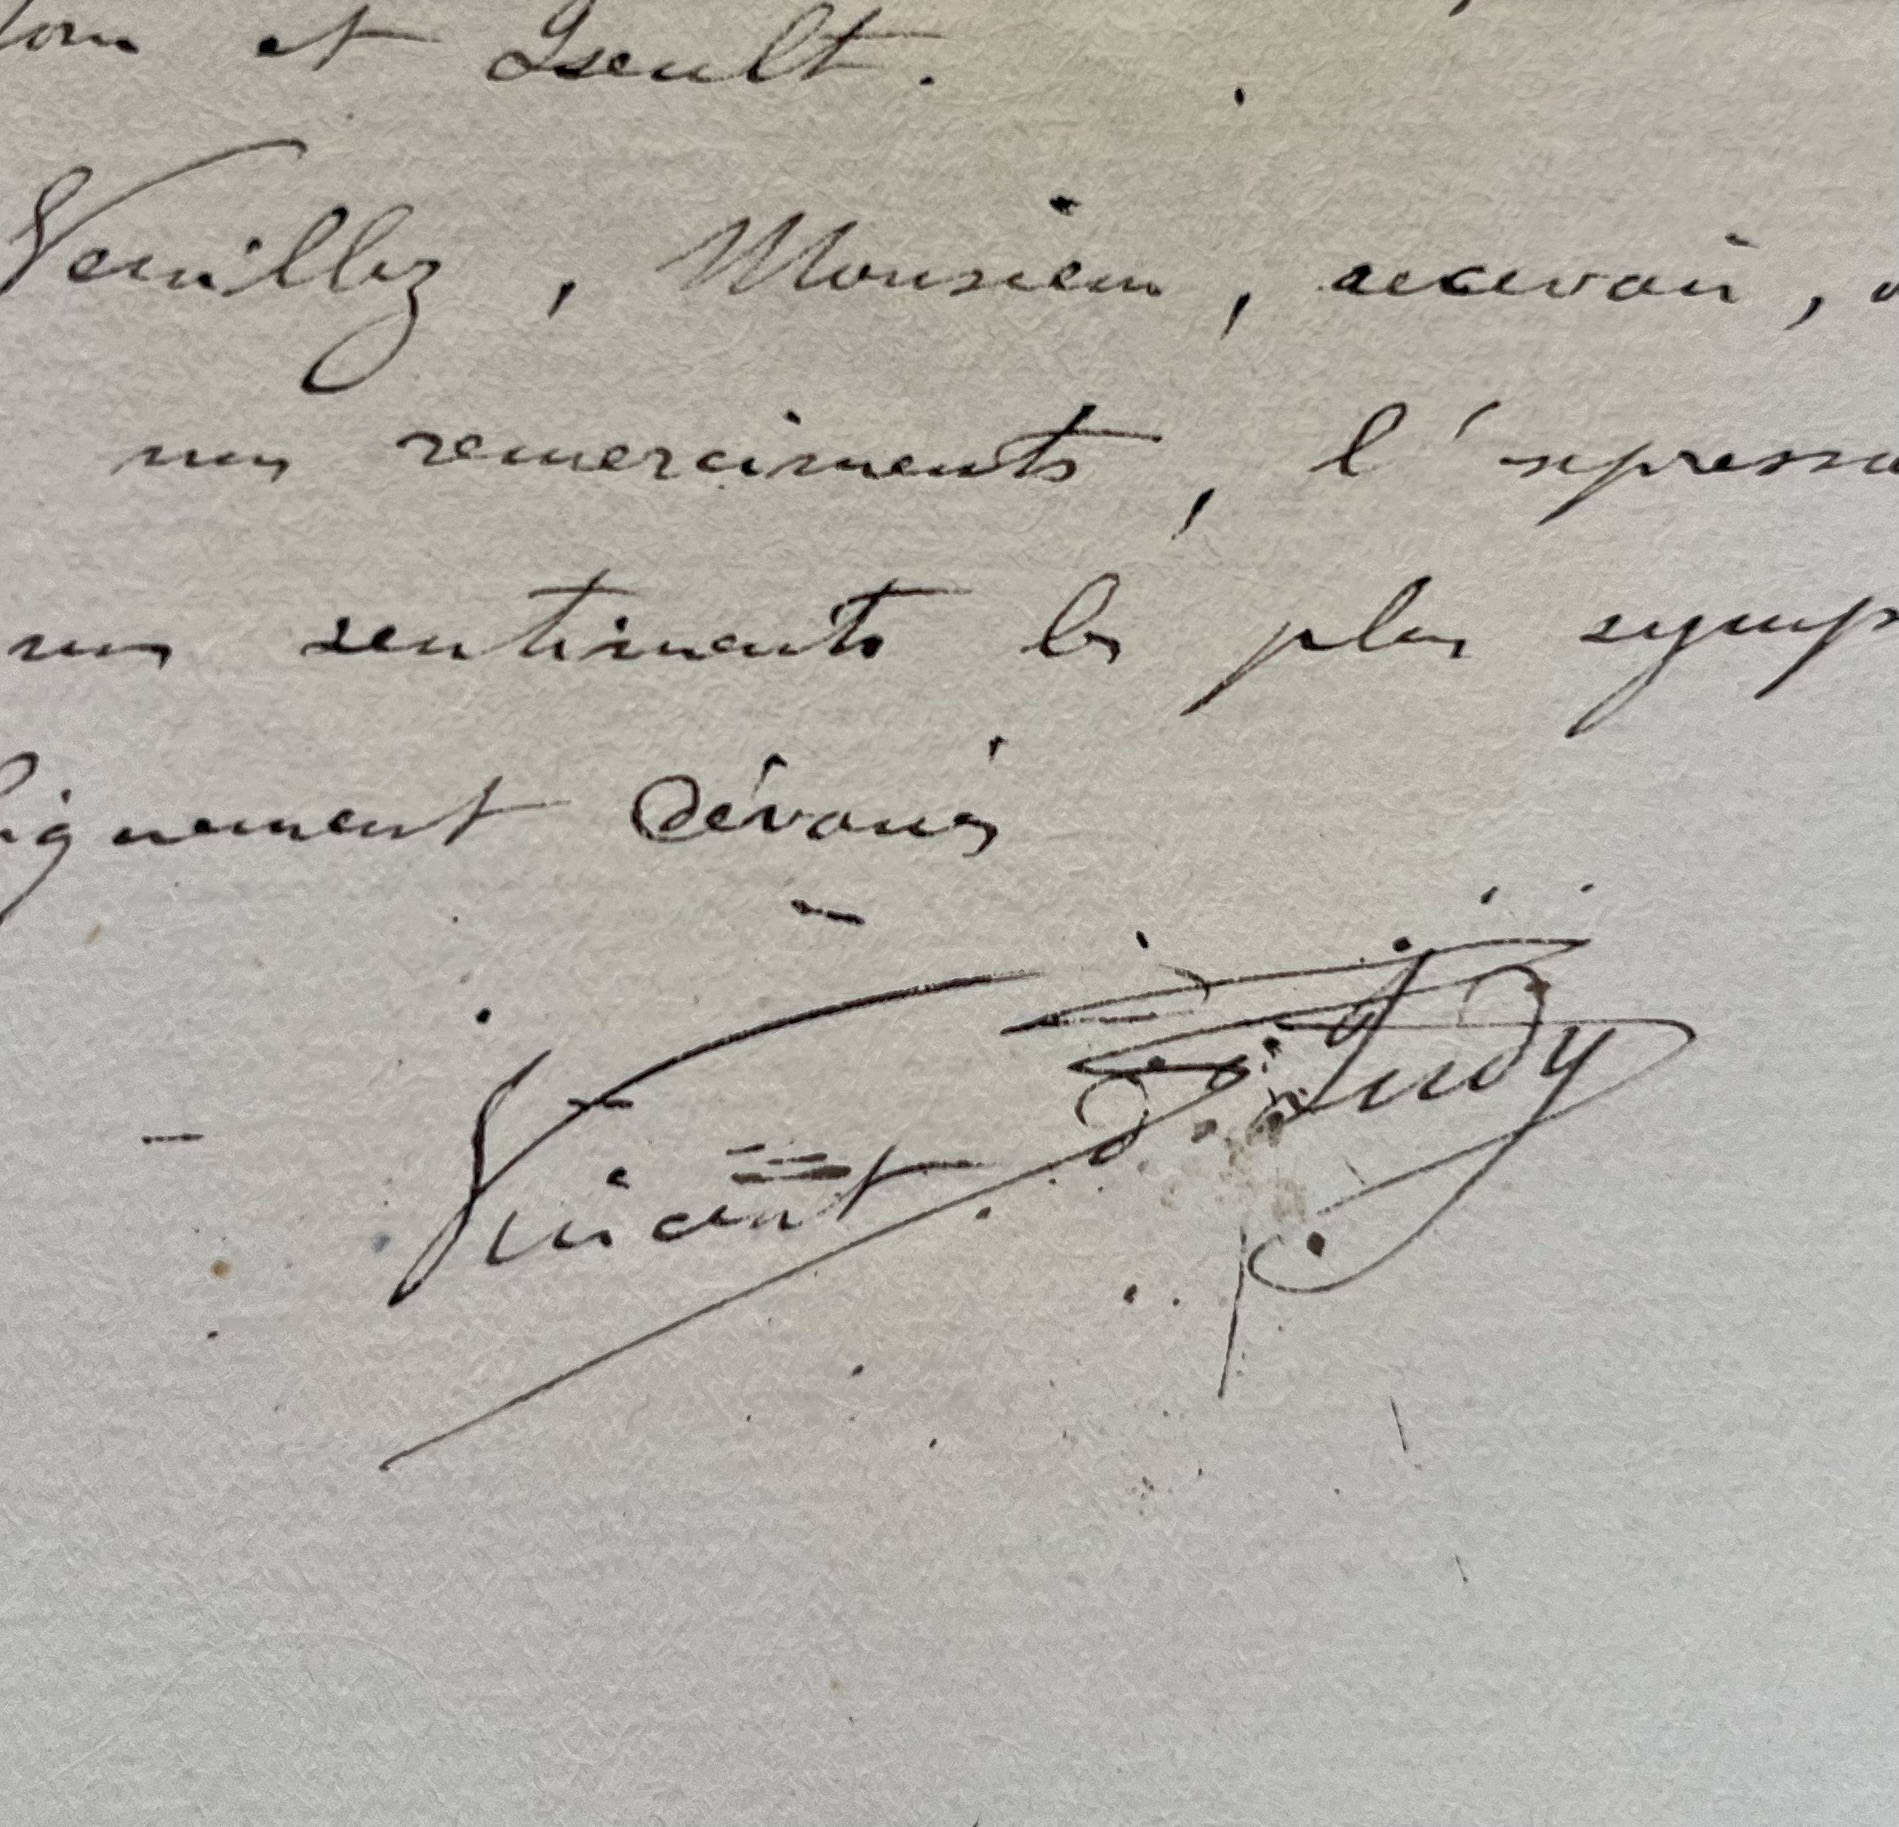 et Iseult.
Veuillez, Monsieur, recevoir,
mes remerciments, l'expressio
mes sentiments les plus symp
dévoués
Vincent d'Indy